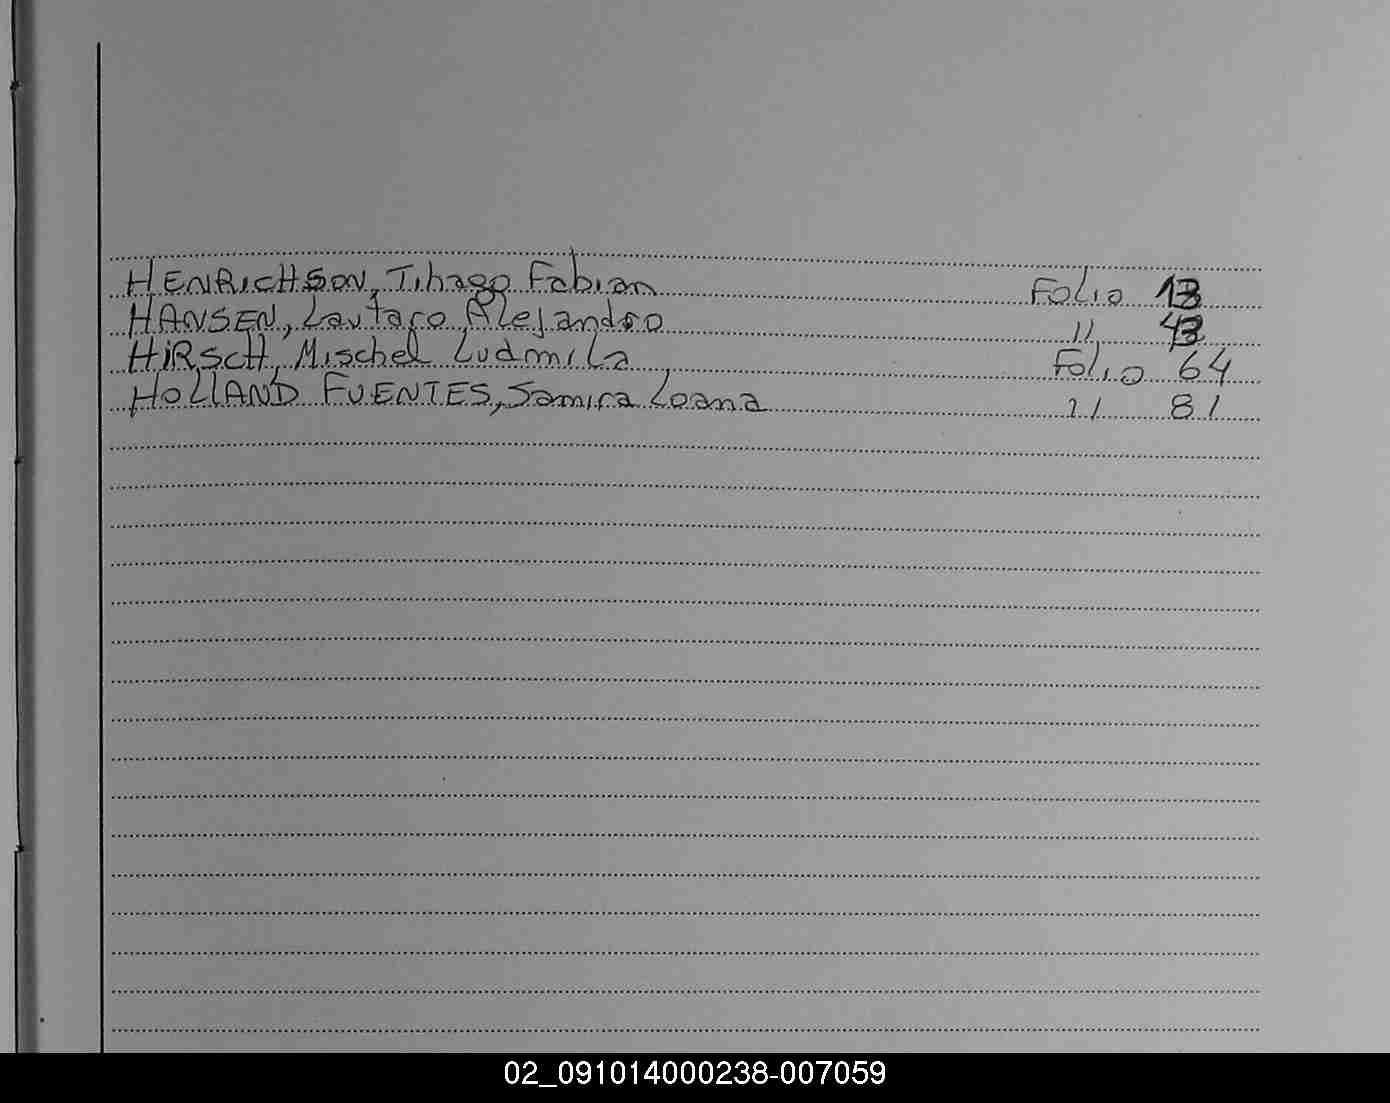 HENRICHSON, Tihago Fabian Folio 13
HANSEN, Lautaro Alejandro 11 43
HIRSCH, Mischel Ludmila Folio 64
HOLLAND FUENTES, Samira Loana 11 81
02_091014000238-007059